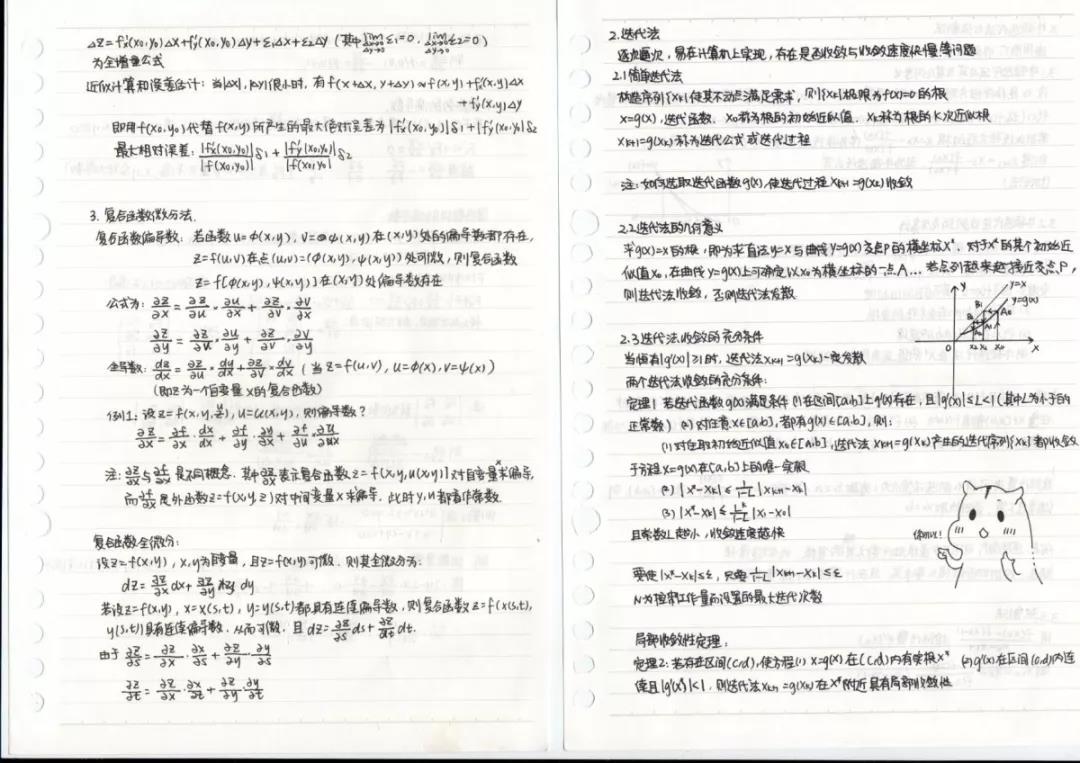 ΔZ = f'x(x₀,y₀)Δx + f'y(x₀,y₀)Δy + ε₁Δx + ε₂Δy (其中 lim Δx→0 Δy→0 ε₁=0, lim Δx→0 Δy→0 ε₂=0)
为全增量公式
近似计算和误差估计: 当|Δx|, |Δy|很小时, 有 f(x+Δx, y+Δy) ≈ f(x,y) + f'x(x,y)Δx
+ f'y(x,y)Δy
即用f(x₀,y₀)代替f(x,y)所产生的最大绝对误差为 |f'x(x₀,y₀)|δ₁ + |f'y(x₀,y₀)|δ₂
最大相对误差: |f'x(x₀,y₀)|/|f(x₀,y₀)| δ₁ + |f'y(x₀,y₀)|/|f(x₀,y₀)| δ₂
3. 复合函数微分法.
复合函数偏导数: 若函数 u=φ(x,y), v=ψ(x,y)在(x,y)处的偏导数都存在,
z=f(u,v)在点(u,v)=(φ(x,y), ψ(x,y))处可微, 则复合函数
z=f[φ(x,y), ψ(x,y)]在(x,y)处偏导数存在
公式为: ∂z/∂x = ∂z/∂u · ∂u/∂x + ∂z/∂v · ∂v/∂x
∂z/∂y = ∂z/∂u · ∂u/∂y + ∂z/∂v · ∂v/∂y
全导数: dz/dx = ∂z/∂u · du/dx + ∂z/∂v · dv/dx (当 z=f(u,v), u=φ(x), v=ψ(x))
(即z为一个自变量x的复合函数)
例1: 设z=f(x,y,u), u=u(x,y), 则偏导数?
∂z/∂x = ∂f/∂x · dx/dx + ∂f/∂y · ∂y/∂x + ∂f/∂u · ∂u/∂x
注: ∂z/∂x 与 ∂f/∂x 是不同概念. 其中 ∂z/∂x 表示复合函数 z=f(x,y,u(x,y))对自变量x求偏导,
而 ∂f/∂x 是外函数z=f(x,y,z)对中间变量x求偏导. 此时y,u都看作常数.
复合函数全微分:
设z=f(x,y), x,y为自变量, 且z=f(x,y)可微. 则其全微分为:
dz = ∂z/∂x dx + ∂z/∂y dy
若设z=f(x,y), x=x(s,t), y=y(s,t)都具有连续偏导数, 则复合函数z=f(x(s,t),
y(s,t))具有连续偏导数. 从而可微, 且 dz = ∂z/∂s ds + ∂z/∂t dt.
由于 ∂z/∂s = ∂z/∂x · ∂x/∂s + ∂z/∂y · ∂y/∂s
∂z/∂t = ∂z/∂x · ∂x/∂t + ∂z/∂y · ∂y/∂t
2. 迭代法
逐次逼近, 易在计算机上实现, 存在是否收敛与收敛速度快慢等问题
2.1 简单迭代法
构造序列{xk}使其不动点满足需求, 则{xk}极限为f(x)=0的根
x=g(x), 迭代函数. x₀称为根的初始近似值. xk称为根的K次近似根
xk+1=g(xk)称为迭代公式或迭代过程
注: 如何选取迭代函数g(x), 使迭代过程xk+1=g(xk)收敛
2.2 迭代法的几何意义
求g(x)=x的根, 即为求直线y=x与曲线y=g(x)交点P的横坐标x*. 对于x*的某个初始近
似值x₀, 在曲线y=g(x)上可确定以x₀为横坐标的一点A... 若点列越来越接近交点P,
则迭代法收敛, 否则迭代法发散
y
y=x
y=g(x)
0
x
2.3 迭代法收敛的充分条件
当恒有|g'(x)|≥1时, 迭代法xk+1=g(xk)一定发散
两个迭代法收敛的充分条件:
定理1 若迭代函数g(x)满足条件 (1)在区间[a,b]上g'(x)存在, 且|g'(x)|≤L<1(其中L为小于1的
正常数) (2)对任意x∈[a,b], 都有g(x)∈[a,b], 则:
(1)对任取初始近似值x₀∈[a,b], 迭代法xk+1=g(xk)产生的迭代序列{xk}都收敛
于方程x=g(x)在[a,b]上的唯一实根
(2) |x*-xk| ≤ 1/(1-L) |xk+1-xk|
(3) |x*-xk| ≤ Lᵏ/(1-L) |x₁-x₀|
且常数L越小, 收敛速度越快
要使|x*-xk|≤ε, 只要 1/(1-L) |xk+1-xk|≤ε
N为控制工作量而设置的最大迭代次数
你可以!
局部收敛性定理:
定理2: 若存在区间(c,d), 使方程(1) x=g(x)在(c,d)内有实根x* (2)g'(x)在区间(c,d)内连
续且|g'(x)|<1, 则迭代法xk+1=g(xk)在x*附近具有局部收敛性